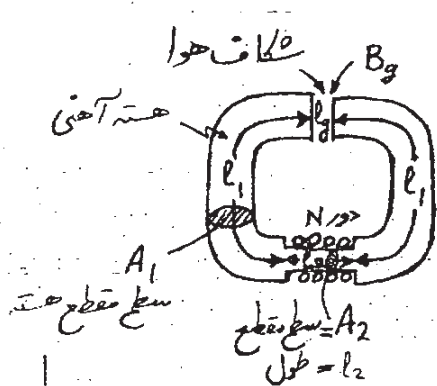 شکاف هوا
Bg
هسته آهنی
lg
l1
l1
N دور
A1
سطح مقطع هسته
l2
سطح مقطع = A2
طول = l2